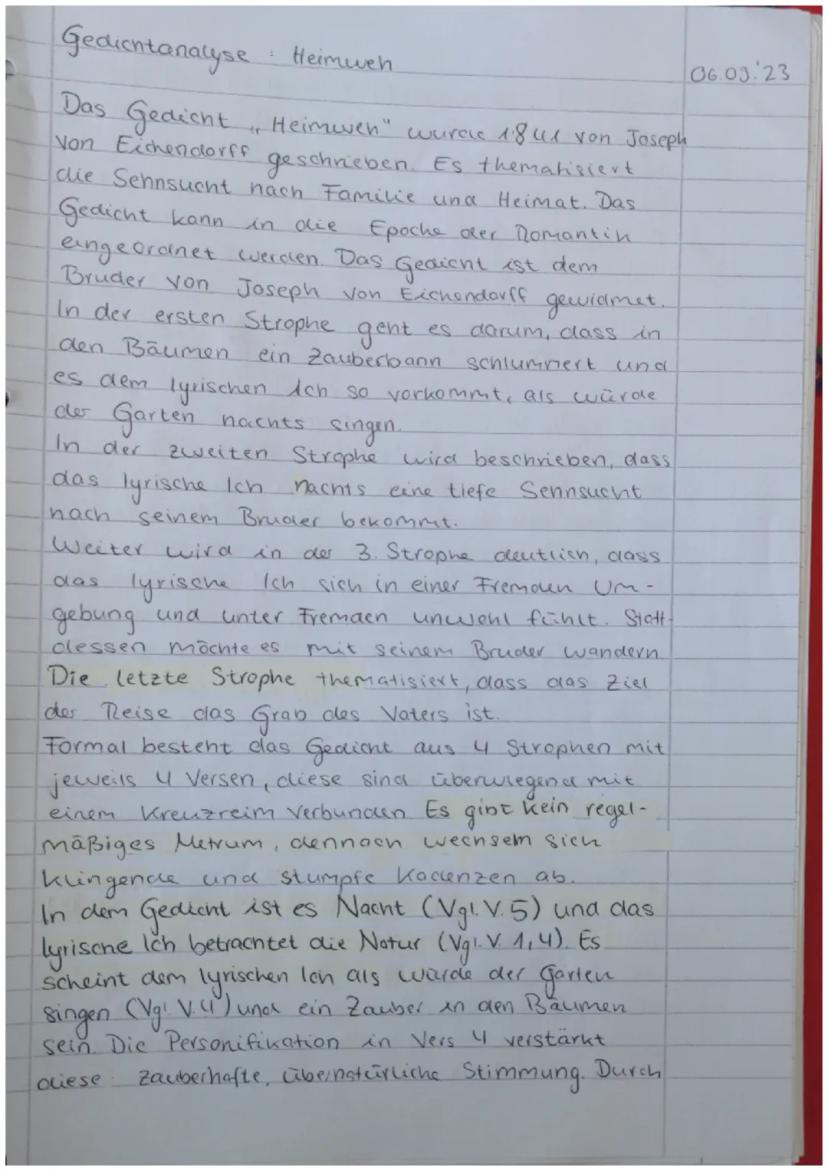 Gedichtanalyse : Heimweh
06.03.'23
Das Gedicht „Heimweh" wurde 1841 von Joseph
von Eichendorff geschrieben. Es thematisiert
die Sehnsucht nach Familie und Heimat. Das
Gedicht kann in die Epoche der Romantik
eingeordnet werden. Das Gedicht ist dem
Bruder von Joseph von Eichendorff gewidmet.
In der ersten Strophe geht es darum, dass in
den Bäumen ein Zauberbann schlummert und
es dem lyrischen Ich so vorkommt, als würde
der Garten nachts singen.
In der zweiten Strophe wird beschrieben, dass
das lyrische Ich nachts eine tiefe Sehnsucht
nach seinem Bruder bekommt.
Weiter wird in der 3. Strophe deutlich, dass
das lyrische Ich sich in einer Fremden Um-
gebung und unter Fremden unwohl fühlt. Statt-
dessen möchte es mit seinem Bruder wandern.
Die letzte Strophe thematisiert, dass das Ziel
der Reise das Grab des Vaters ist.
Formal besteht das Gedicht aus 4 Strophen mit
jeweils 4 Versen, diese sind überwiegend mit
einem Kreuzreim verbunden. Es gibt kein regel-
mäßiges Metrum, dennoch wechseln sich
klingende und stumpfe Kadenzen ab.
In dem Gedicht ist es Nacht (Vgl. V. 5) und das
lyrische Ich betrachtet die Natur (Vgl. V. 1,4). Es
scheint dem lyrischen Ich als würde der Garten
singen (Vgl. V.4) und ein Zauber in den Bäumen
sein. Die Personifikation in Vers 4 verstärkt
diese zauberhafte, übernatürliche Stimmung. Durch